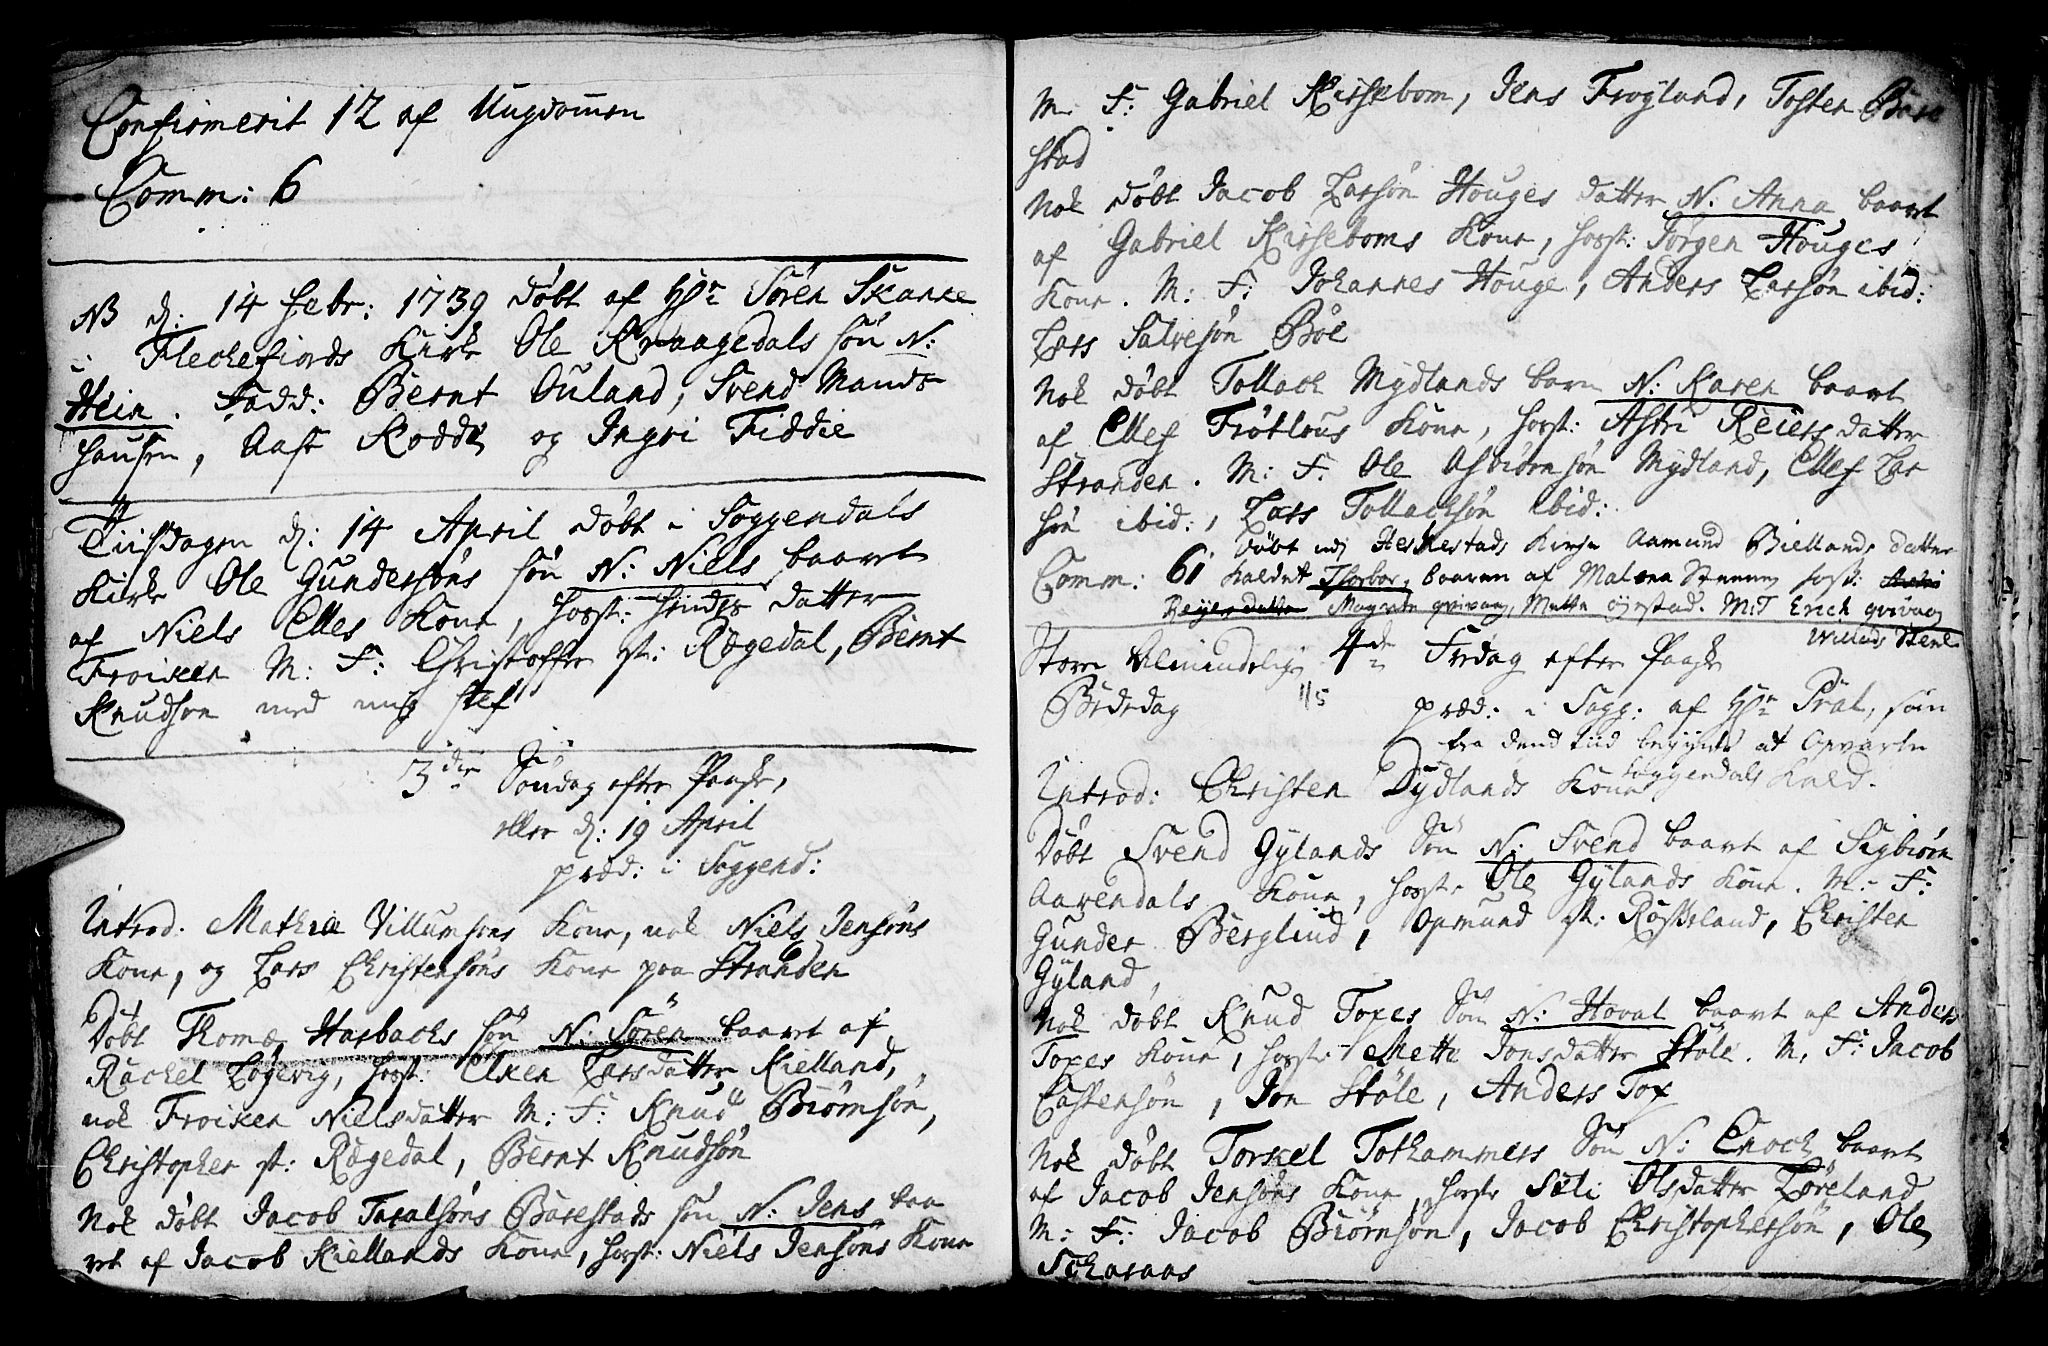 Confirmerit 12 af Ungdommen
Comm: 6
NB d: 14 Febr: 1739 døbt af Hr Sören Skanke
i Fleckefiords Kirke Ole Kraagedals søn N:
Hein. Fadd: Bernt Ouland, Svend Mands
hausen, Aase Rodde og Ingri Fiddie
Tiisdagen d: 14 April døbt i Soggendals
Kirke Ole Gundersøns søn N: Niels baaret
af Niels Elles Kone, forst: hendes datter
Froiken M: F: Christoffer st: Rægedal, Bernt
Knudsøn med mig self
3die Søndag efter Paaske,
eller d: 19 April
præd: i Soggend:
Introd. Mathia Villumsøns Kone, nok Niels Jensøns
Kone, og Lars Christensøns Kone paa Stranden
Døbt Thomæ Hasbachs søn N: Sören baaret af
Rachel Løgevig, forst: Elxen Larsdatter Kielland,
nok Froiken Nielsdatter M: F: Knud Biørnsøn,
Christopher st: Rægedal, Bernt Knudsøn
Nok døbt Jacob Taralsøns Barestads søn N: Jens baa
ret af Jacob Kiellands Kone, forst: Niels Jensøns Kone
M: F: Gabriel Kirsebom, Jens Frøyland, Tosten Bare
stad
Nok døbt Jacob Larsøn Houges datter N: Anna baaret
af Gabriel Kirseboms Kone, forst: Jørgen Houges
Kone. M: F: Johannes Houge, Anders Larsøn ibid:
Lars Salvesøn Bøe
Nok døbt Tollach Mydlands barn N: Karen baaret
af Ellef Frøtlous Kone, forst: Astri Reiersdatter
Stranden. M: F: Ole Asbiørnsøn Mydland, Ellef Lar
søn ibid:, Lars Tollachsøn ibid:
Døbt udj Heskestads Kirke Aamund Biellands datter
Comm: 61 kaldet Thorbor, baaren af Malena Steene, forst: Astri
Reiersdatter Magrete qvivaag, Mette øyestad. M: F Erich qvivaag
Willads Stene
Store Almindelig 4de Fredag efter Paaske
Bededag 1/5 præd: i Sogg: af Hr Pral, som
fra dend tiid begynte at Opvarte
Soggendals Kald.
Introd: Christen Dydlands Kone
Døbt Svend Gylands Søn N: Svend baaret af Sigbiørn
Aarendals Kone, forst. Ole Gylands Kone. M: F:
Gunder Berglind, Opmund st: Røsseland, Christen
Gyland,
Nok døbt Knud Toxes Søn N: Hoval baaret af Anders
Toxes Kone, forst: Mette Jonsdatter Støle. M, F: Jacob
Castensøn, Jon Støle, Anders Tox
Nok døbt Torkel Tothammers Søn N: Enoch baaret
af Jacob Jensøns Kone, forst: Seli Olsdatter Løreland
M: F: Jacob Biørnsøn, Jacob Christophersøn, Ole
Scharaas